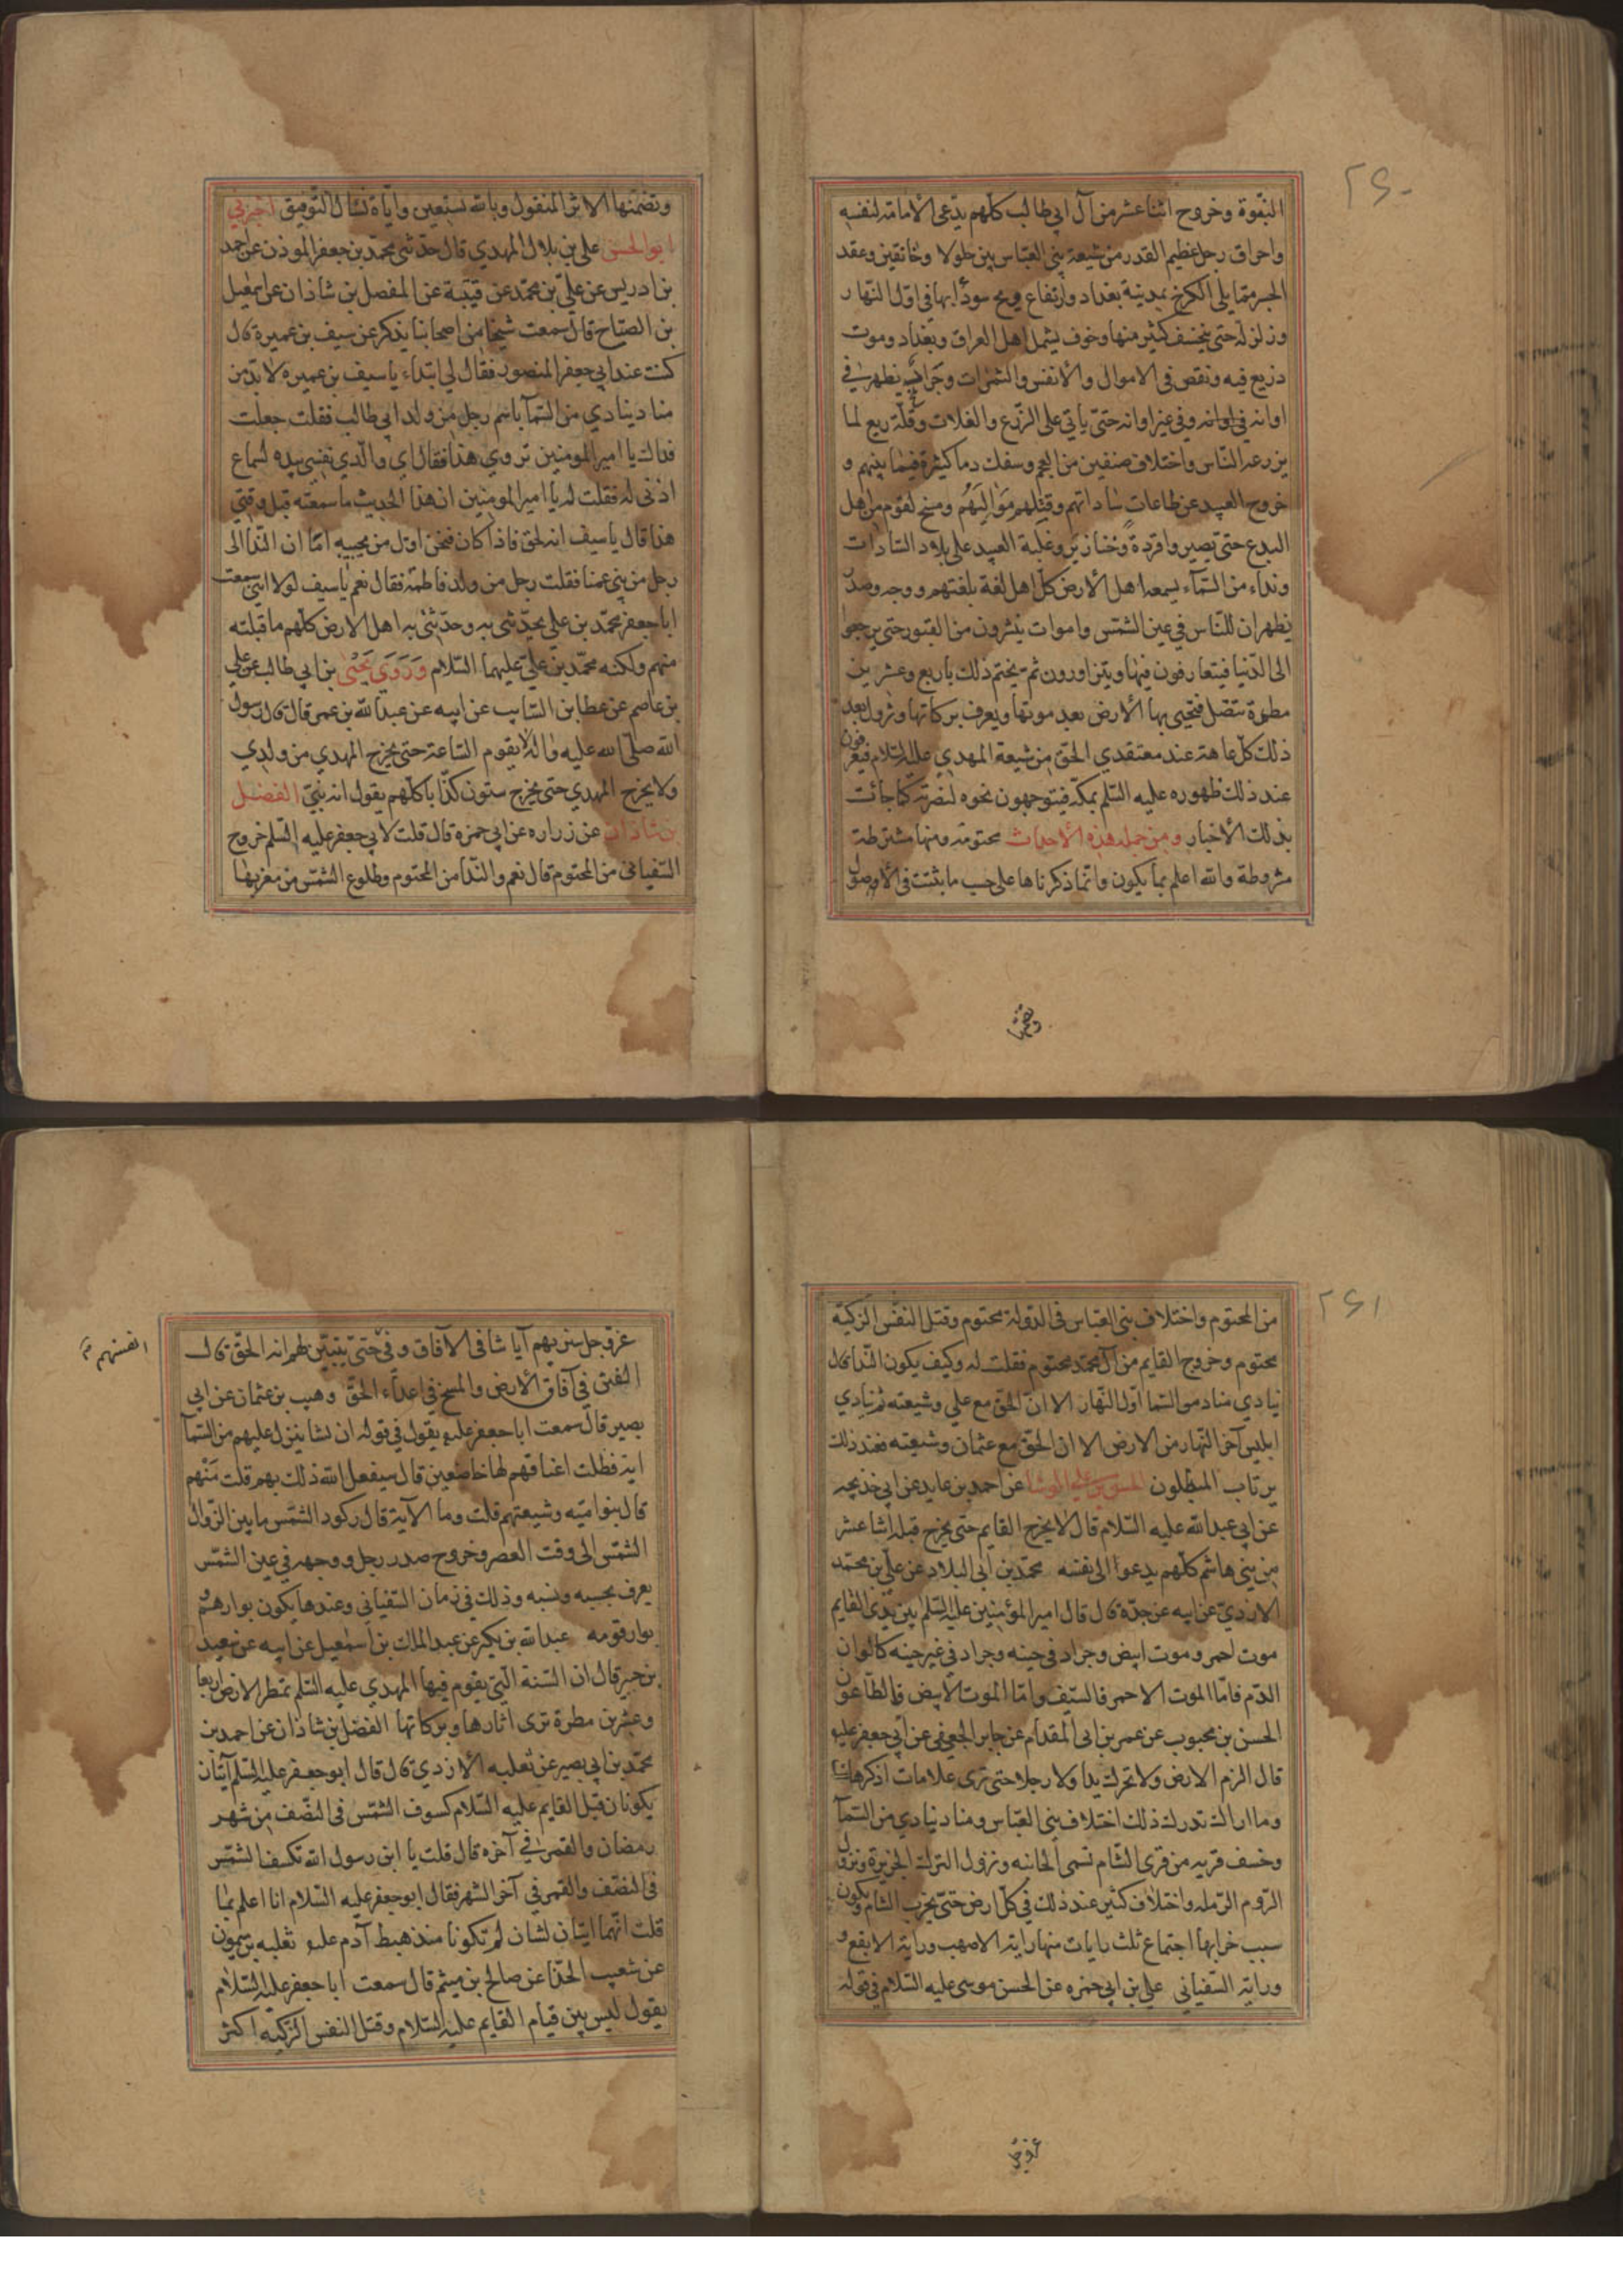 ٢٦٠
النبوة وخروج اثنا عشر من آل ابي طالب كلهم يدعى الأمامة لنفسه
واحراق رجل عظيم القدر من شيعة بني العباس بين جلولا وخانقين وعقد
الجسر مما يلي الكرخ بمدينة بغداد وارتفاع ريح سودا بها في اول النهار
وزلزلة حتى ينخسف كثير منها وخوف يشمل اهل العراق وبغداد وموت
ذريع فيه ونقص في الاموال والأنفس والثمرات وجراد يظهر في
اوانه وفي غير اوانه حتى يأتي على الزرع والغلات وقلة ريع لما
يزرعه الناس واختلاف صنفين من العجم وسفك دما كثيرة فيما بينهم و
خروج العبيد عن طاعات ساداتهم وقتلهم مواليهم ومسخ لقوم من اهل
البدع حتى يصيروا قردة وخنازير وغلبة العبيد على بلاد السادات
ونداء من السماء يسمعه اهل الأرض كل اهل لغة بلغتهم ووجه وصدر
يظهران للناس في عين الشمس واموات ينشرون من القبور حتى يرجعوا
الى الدنيا فيتعارفون فيها ويتزاورون ثم يختم ذلك باربع وعشرين
مطرة تتصل فتحيى بها الأرض بعد موتها ويعرف بركاتها وتزول بعد
ذلك كل عاهة عند معتقدي الحق من شيعة المهدي عليه السلام فيعرفون
عند ذلك ظهوره عليه السلم بمكة فيتوجهون نحوه لنصرته كما جائت
بذلك الأخبار ومن جملة هذه الأحداث محتومة ومنها مشترطة
مشروطة والله اعلم بما يكون وانما ذكرناها على حسب ما يثبت في الأصول
وتضمنها
وتضمنها الاثر المنقول وبالله نستعين واياه نسأل التوفيق اخبرني
ابو الحسن علي بن بلال المهدي قال حدثني محمد بن جعفر الموذن عن احمد
بن ادريس عن علي بن محمد عن قتيبة عن المفضل بن شاذان عن اسمعيل
بن الصباح قال سمعت شيخا من اصحابنا يذكر عن سيف بن عميرة قال
كنت عند ابي جعفر المنصور فقال لي ابتداء يا سيف بن عميره لا بد من
مناد ينادي من السمآ باسم رجل من ولد ابي طالب فقلت جعلت
فداك يا امير المومنين تروي هذا فقال اي والذي نفسي بيده لسماع
اذني له فقلت له يا امير المومنين ان هذا الحديث ما سمعته قبل وقتي
هذا قال يا سيف انه لحق فاذا كان فنحن اول من يجيبه اما ان الندآ الى
رجل من بني عمنا فقلت رجل من ولد فاطمة فقال نعم يا سيف لولا انني سمعت
ابا جعفر محمد بن علي يحدثني به وحدثني به اهل الارض كلهم ما قبلته
منهم ولكنه محمد بن علي عليهما السلام وروي يحيى بن ابي طالب عن علي
بن عاصم عن عطا بن السايب عن ابيه عن عبد الله بن عمر قال قال رسول
الله صلى الله عليه واله لا يقوم الساعة حتى يخرج المهدي من ولدي
ولا يخرج المهدي حتى يخرج ستون كذابا كلهم يقول انه نبي الفضل
بن شاذان عن زراره عن ابي حمزة قال قلت لابي جعفر عليه السلم خروج
السفياني من المحتوم قال نعم والندا من المحتوم وطلوع الشمس من مغربها
٢٦١
من المحتوم واختلاف بني العباس في الدولة محتوم وقتل النفس الزكية
محتوم وخروج القايم من آل محمد محتوم فقلت له وكيف يكون الندا قال
ينادي مناد من السما اول النهار الا ان الحق مع علي وشيعته ثم ينادي
ابليس آخر النهار من الارض الا ان الحق مع عثمان وشيعته فعند ذلك
يرتاب المبطلون الحسن بن علي الوشا عن احمد بن عايد عن ابي خديجه
عن ابي عبد الله عليه السلام قال لا يخرج القايم حتى يخرج قبله اثنا عشر
من بني هاشم كلهم يدعوا الى نفسه محمد بن ابى البلاد عن علي بن محمد
الازدي عن ابيه عن جده قال قال امير المؤمنين عليه السلم بين يدى القايم
موت احمر وموت ابيض وجراد في حينه وجراد في غير حينه كالوان
الدم فاما الموت الاحمر فالسيف واما الموت الأبيض فالطاعون
الحسن بن محبوب عن عمر بن ابى المقدام عن جابر الجعفي عن ابي جعفر عليه
قال الزم الارض ولا تحرك يدا ولا رجلا حتى ترى علامات اذكرها لك
وما اراك تدرك ذلك اختلاف بني العباس ومناد ينادي من السمآ
وخسف قريه من قرى الشام تسمى الجابيه ونزول الترك الجزيرة ونزول
الروم الرمله واختلاف كثير عند ذلك في كل ارض حتى يخرب الشام ويكون
سبب خرابها اجتماع ثلث رايات منها راية الاصهب وراية الابقع و
وراية السفياني علي بن ابي حمزه عن الحسن موسى عليه السلام في قوله
عز وجل
عز وجل سنريهم آياتنا في الآفاق وفي حتى يتبين لهم انه الحق قال
انفسهم
الفتن في آفاق الأرض والمسخ في اعداء الحق وهيب بن عثمان عن ابي
بصير قال سمعت ابا جعفر عليه يقول في قوله ان نشا ننزل عليهم من السمآ
اية فظلت اعناقهم لها خاضعين قال سيفعل الله ذلك بهم قلت من هم
قال بنوا امية وشيعتهم قلت وما الآية قال ركود الشمس ما بين الزوال
الشمس الى وقت العصر وخروج صدر رجل ووجهه في عين الشمس
يعرف بحسبه ونسبه وذلك في زمان السفياني وعندها يكون بوارهم و
بوار قومه عبد الله بن بكير عن عبد الملك بن اسمعيل عن ابيه عن سعيد
بن جبير قال ان السنة التي يقوم فيها المهدي عليه السلم تمطر الارض اربعا
وعشرين مطرة ترى اثارها وبركاتها الفضل بن شاذان عن احمد بن
محمد بن ابي بصير عن ثعلبه الأزدي قال قال ابو جعفر عليه السلم آيتان
يكونان قبل القايم عليه السلام كسوف الشمس في النصف من شهر
رمضان والقمر في آخره قال قلت يا ابن رسول الله تكسف الشمس
في النصف والقمر في آخر الشهر فقال ابو جعفر عليه السلام انا اعلم بما
قلت انهما ايتان لم تكونا منذ هبط آدم عليه ثعلبه بن ميمون
عن شعيب الحذا عن صالح بن ميثم قال سمعت ابا جعفر عليه السلام
يقول ليس بين قيام القايم عليه السلام وقتل النفس الزكيه اكثر